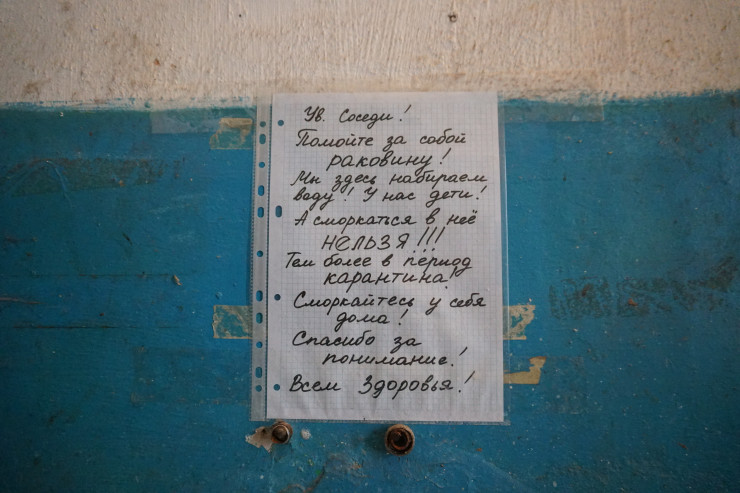 Ув. Соседи!
Помойте за собой
раковину!
Мы здесь набираем
воду! У нас дети!
А сморкаться в неё
НЕЛЬЗЯ!!!
Тем более в период
карантина!
Сморкайтесь у себя
дома!
Спасибо за
понимание!
Всем Здоровья!